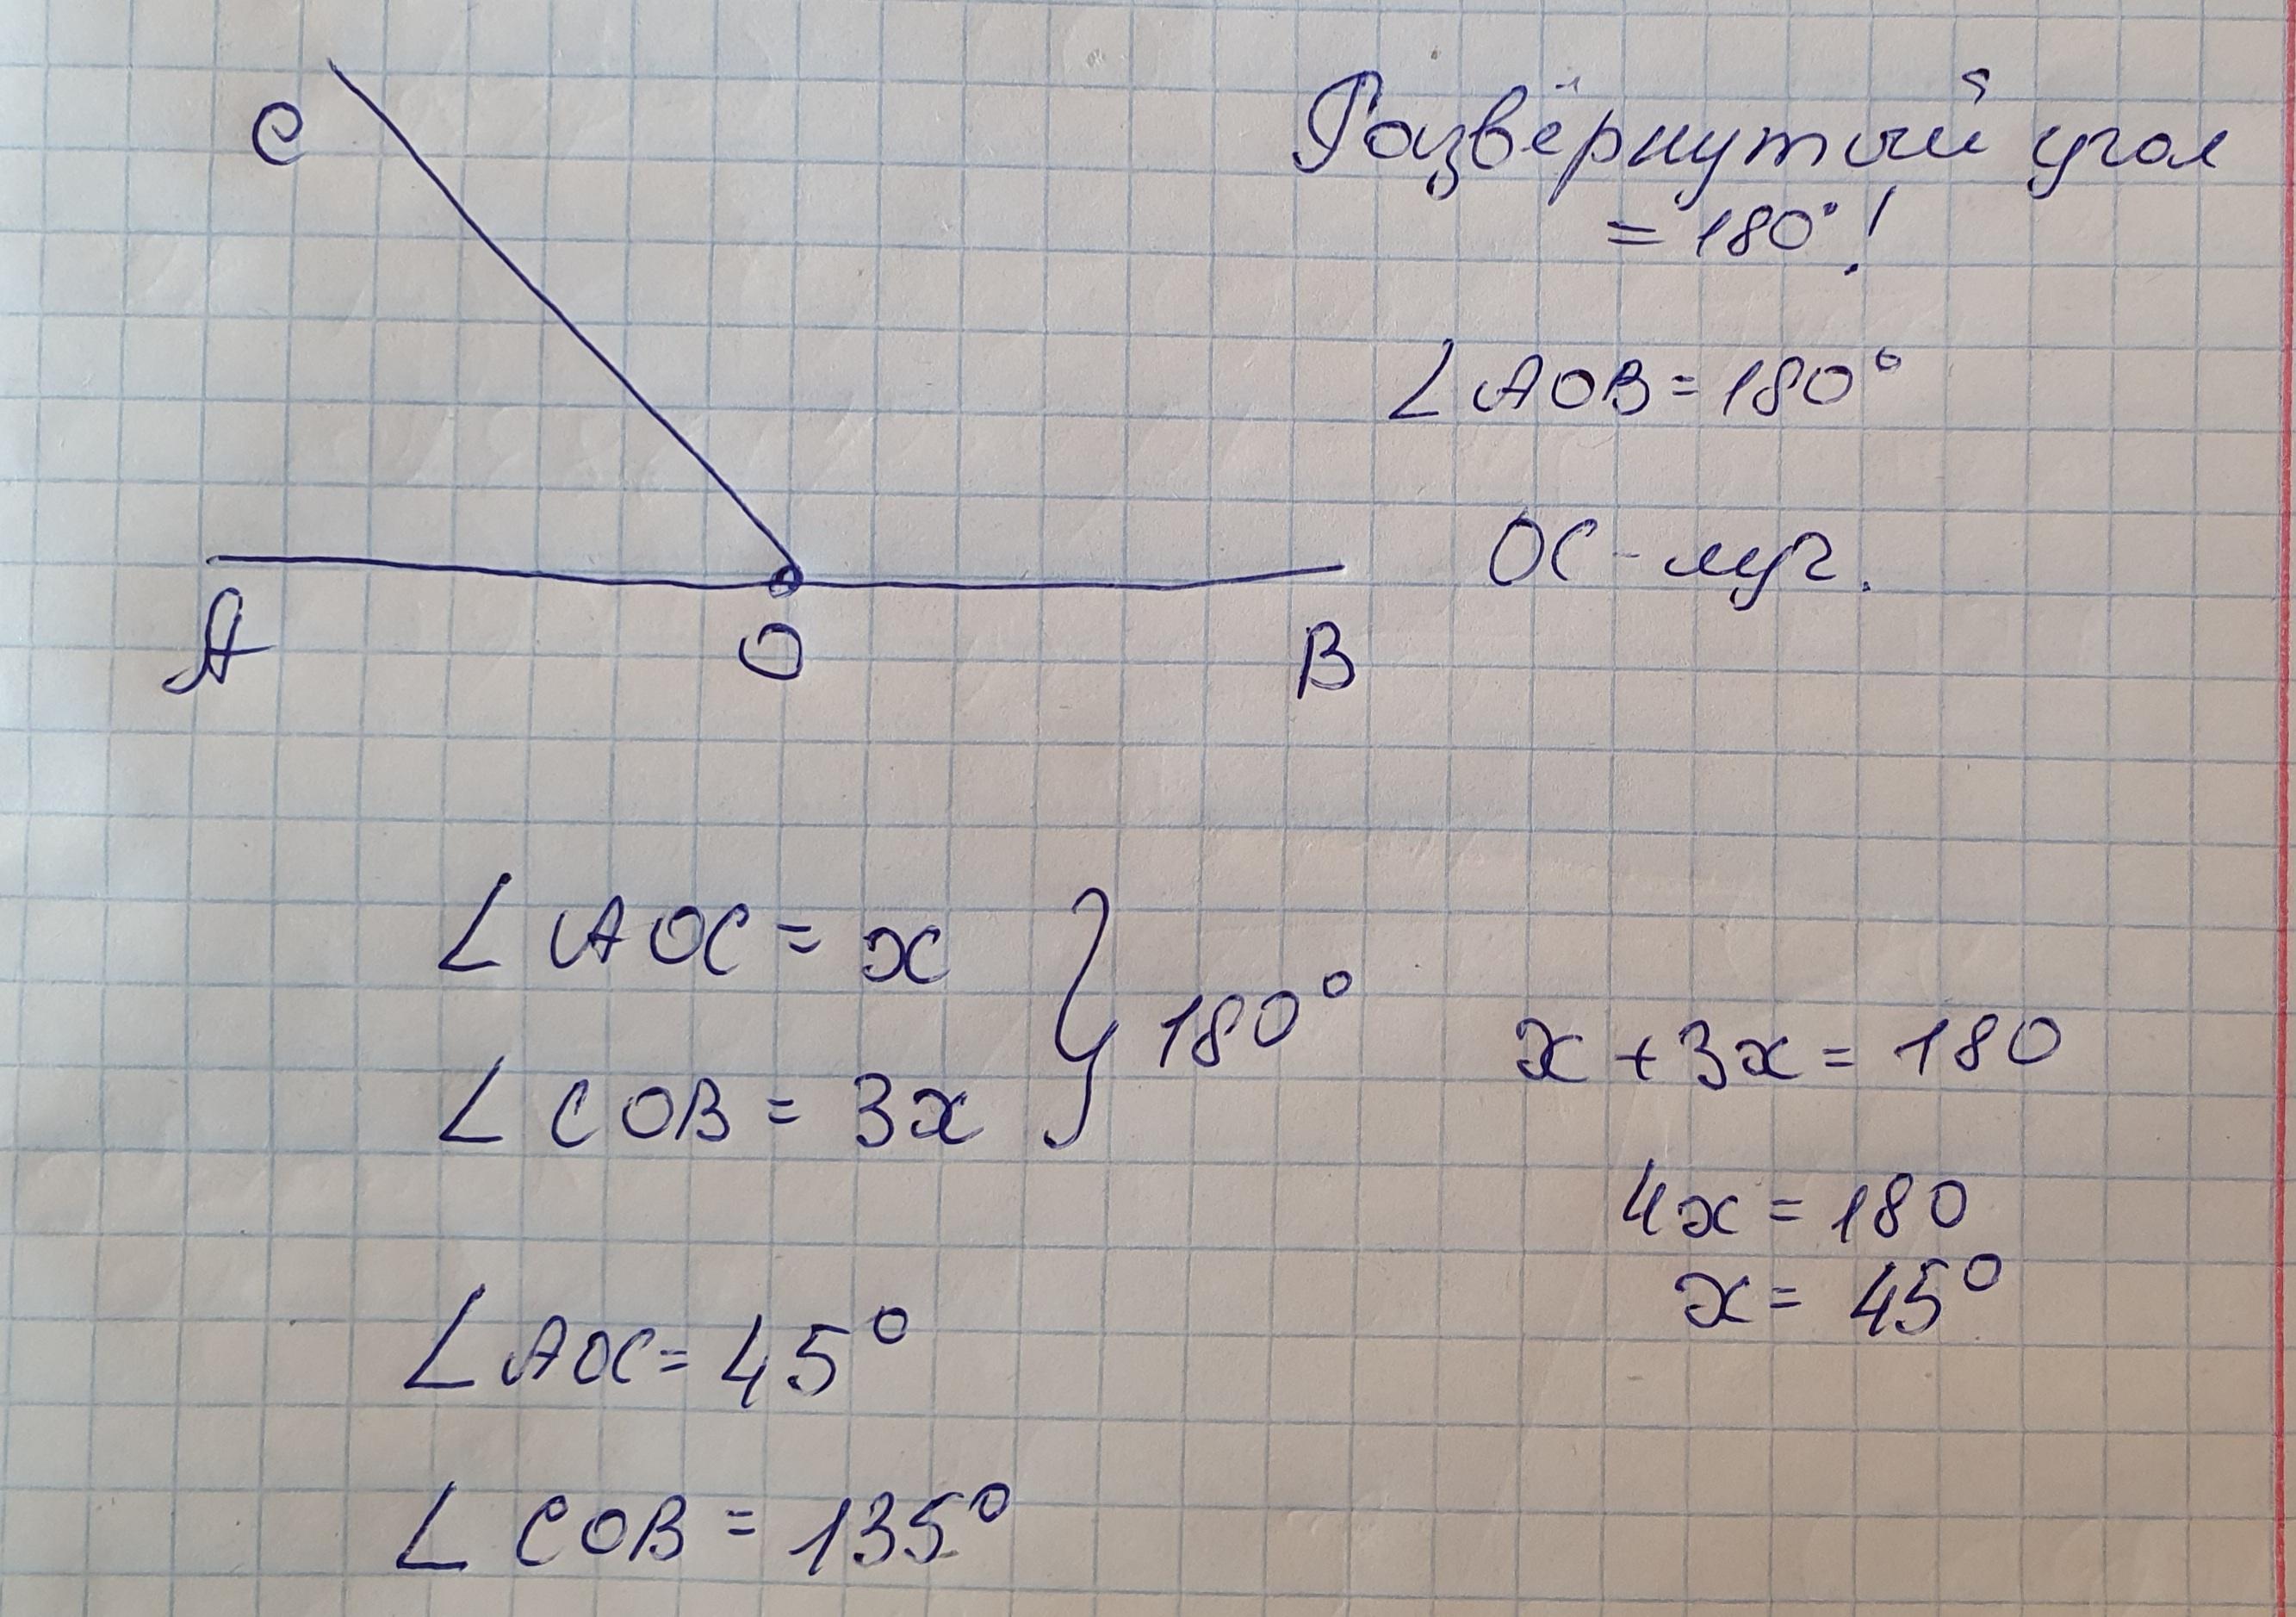 C
Развёрнутый угол
= 180°!
∠AOB = 180°
OC - луч.
A O B
∠AOC = x
∠COB = 3x
} 180°
x + 3x = 180
4x = 180
x = 45°
∠AOC = 45°
∠COB = 135°